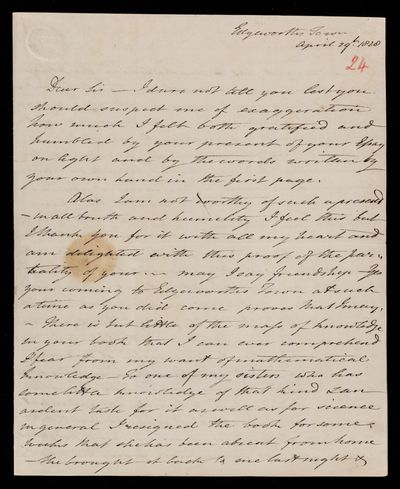 Edgeworths Town
April 29th 1828
24
Dear Sir — I dare not tell you lest you
should suspect me of exaggeration
how much I felt both gratified and
humbled by your present of your Essay
on light and by the words written by
your own hand in the first page.
Alas I am not worthy of such a present
— in all truth and humility I feel this but
I thank you for it with all my heart and
am delighted with this proof of the par-
tiality of your — may I say friendship — Yes
your coming to Edgeworths Town at such
a time as you did come proves that I may.
— There is but little of the mass of knowledge
in your book that I can ever comprehend
I fear from my want of mathematical
knowledge To one of my sisters who has
some little knowledge of that kind & an
ardent taste for it as well as for science
in general I resigned the book for some
weeks that she has been absent from home
— She brought it back to me last night &